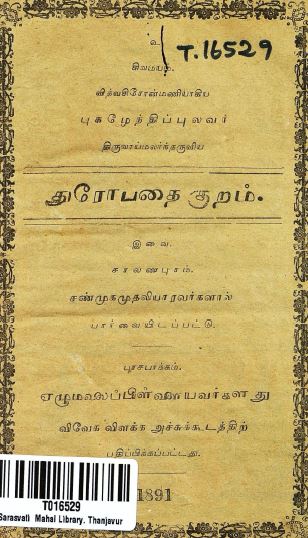 உ
T.16529
சிவமயம்.
வித்வசிரோன்மணியாகிய
புகழேந்திப்புலவர்
திருவாய்மலர்ந்தருளிய
துரோபதை குறம்.
இவை,
சாலணபுரம்.
சண்முகமுதலியாரவர்களால்
பார்வையிடப்பட்டு.
புரசபாக்கம்.
ஏழுமலைப்பிள்ளையவர்களது
விவேக விளக்க அச்சுக்கூடத்திற்
பதிப்பிக்கப்பட்டது.
1891
T016529
Sarasvati Mahal Library, Thanjavur